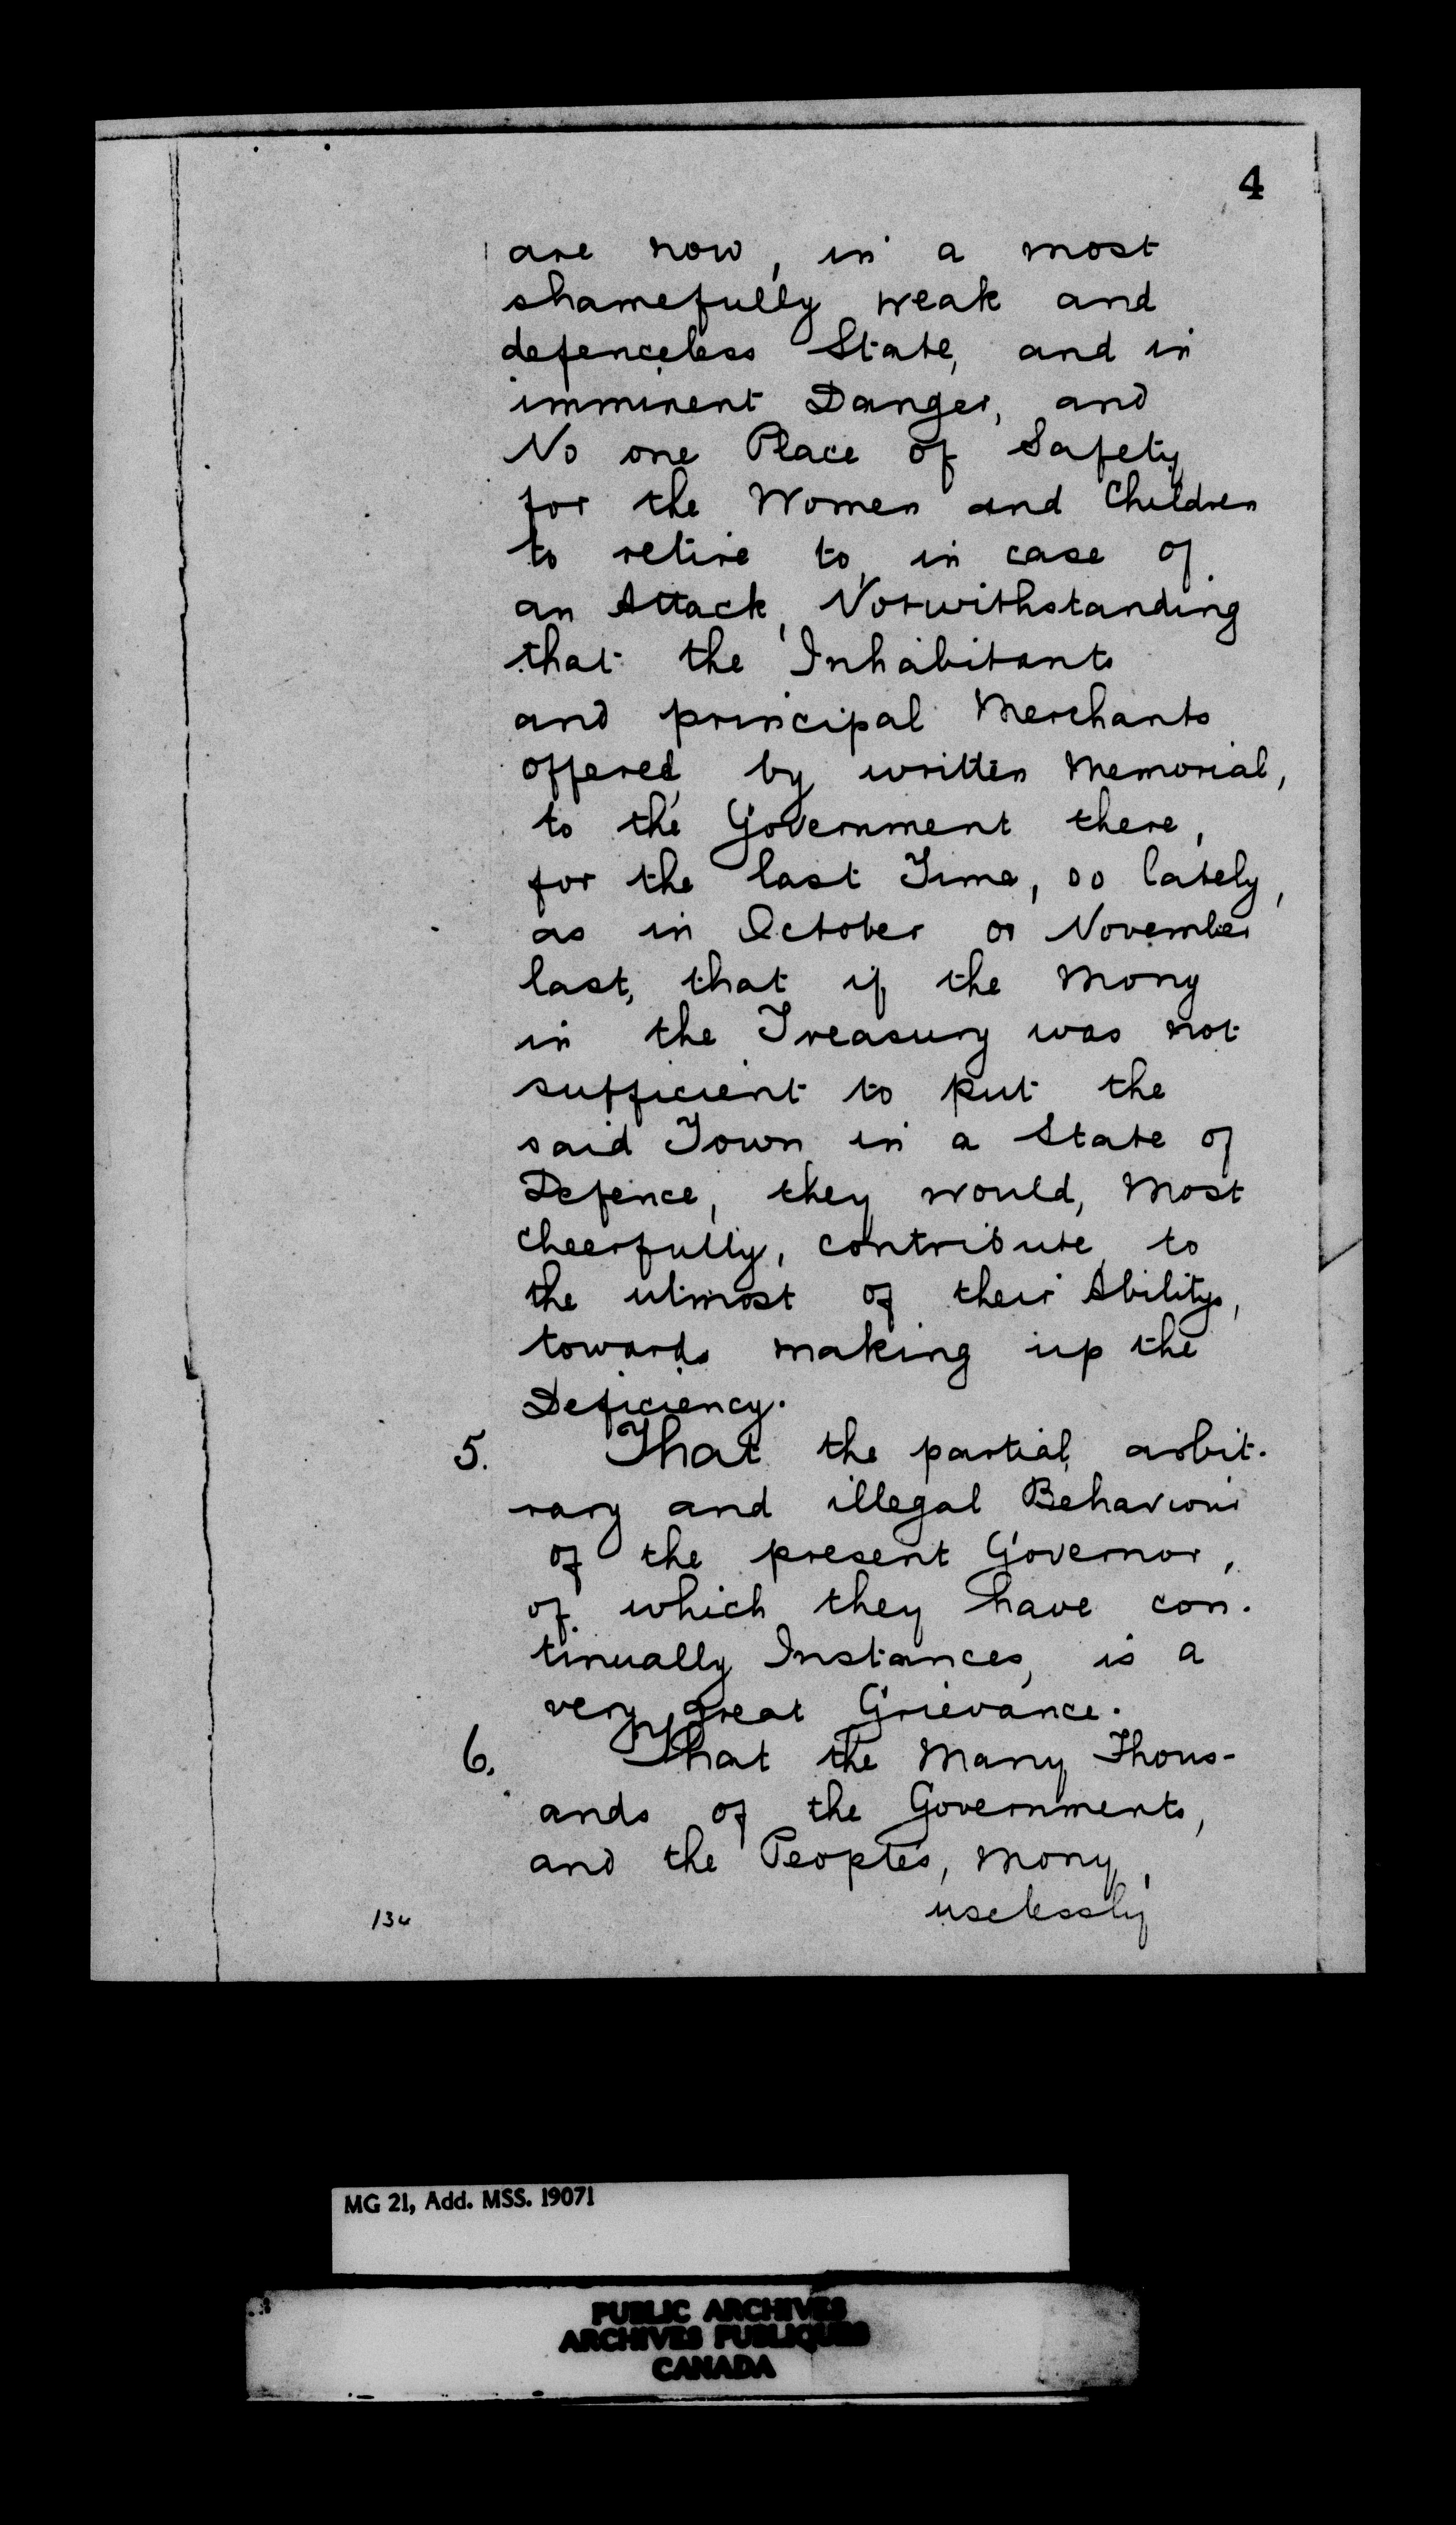 4
are now, in a most
shamefully weak and
defenceless State, and in
imminent Danger, and
No one Place of Safety
for the Women and Children
to retire to, in case of
an Attack, Notwithstanding
that the Inhabitants
and principal Merchants
offered, by written Memorial,
to the Government there,
for the last Time, so lately,
as in October or November
last, that if the Mony
in the Treasury was not
sufficient to put the
said Town in a State of
Defence, they would, Most
cheerfully, contribute, to
the utmost of their Abilitys,
towards making up the
Deficiency.
5. That the partial, arbit-
rary and illegal Behaviour
of the present Governor,
of which they have con-
tinually Instances, is a
very great Grievance.
6. That the Many Thous-
ands of the Governments,
and the Peoples, Mony,
uselessly
MG 21, Add. MSS. 19071
PUBLIC ARCHIVES
ARCHIVES PUBLIQUES
CANADA